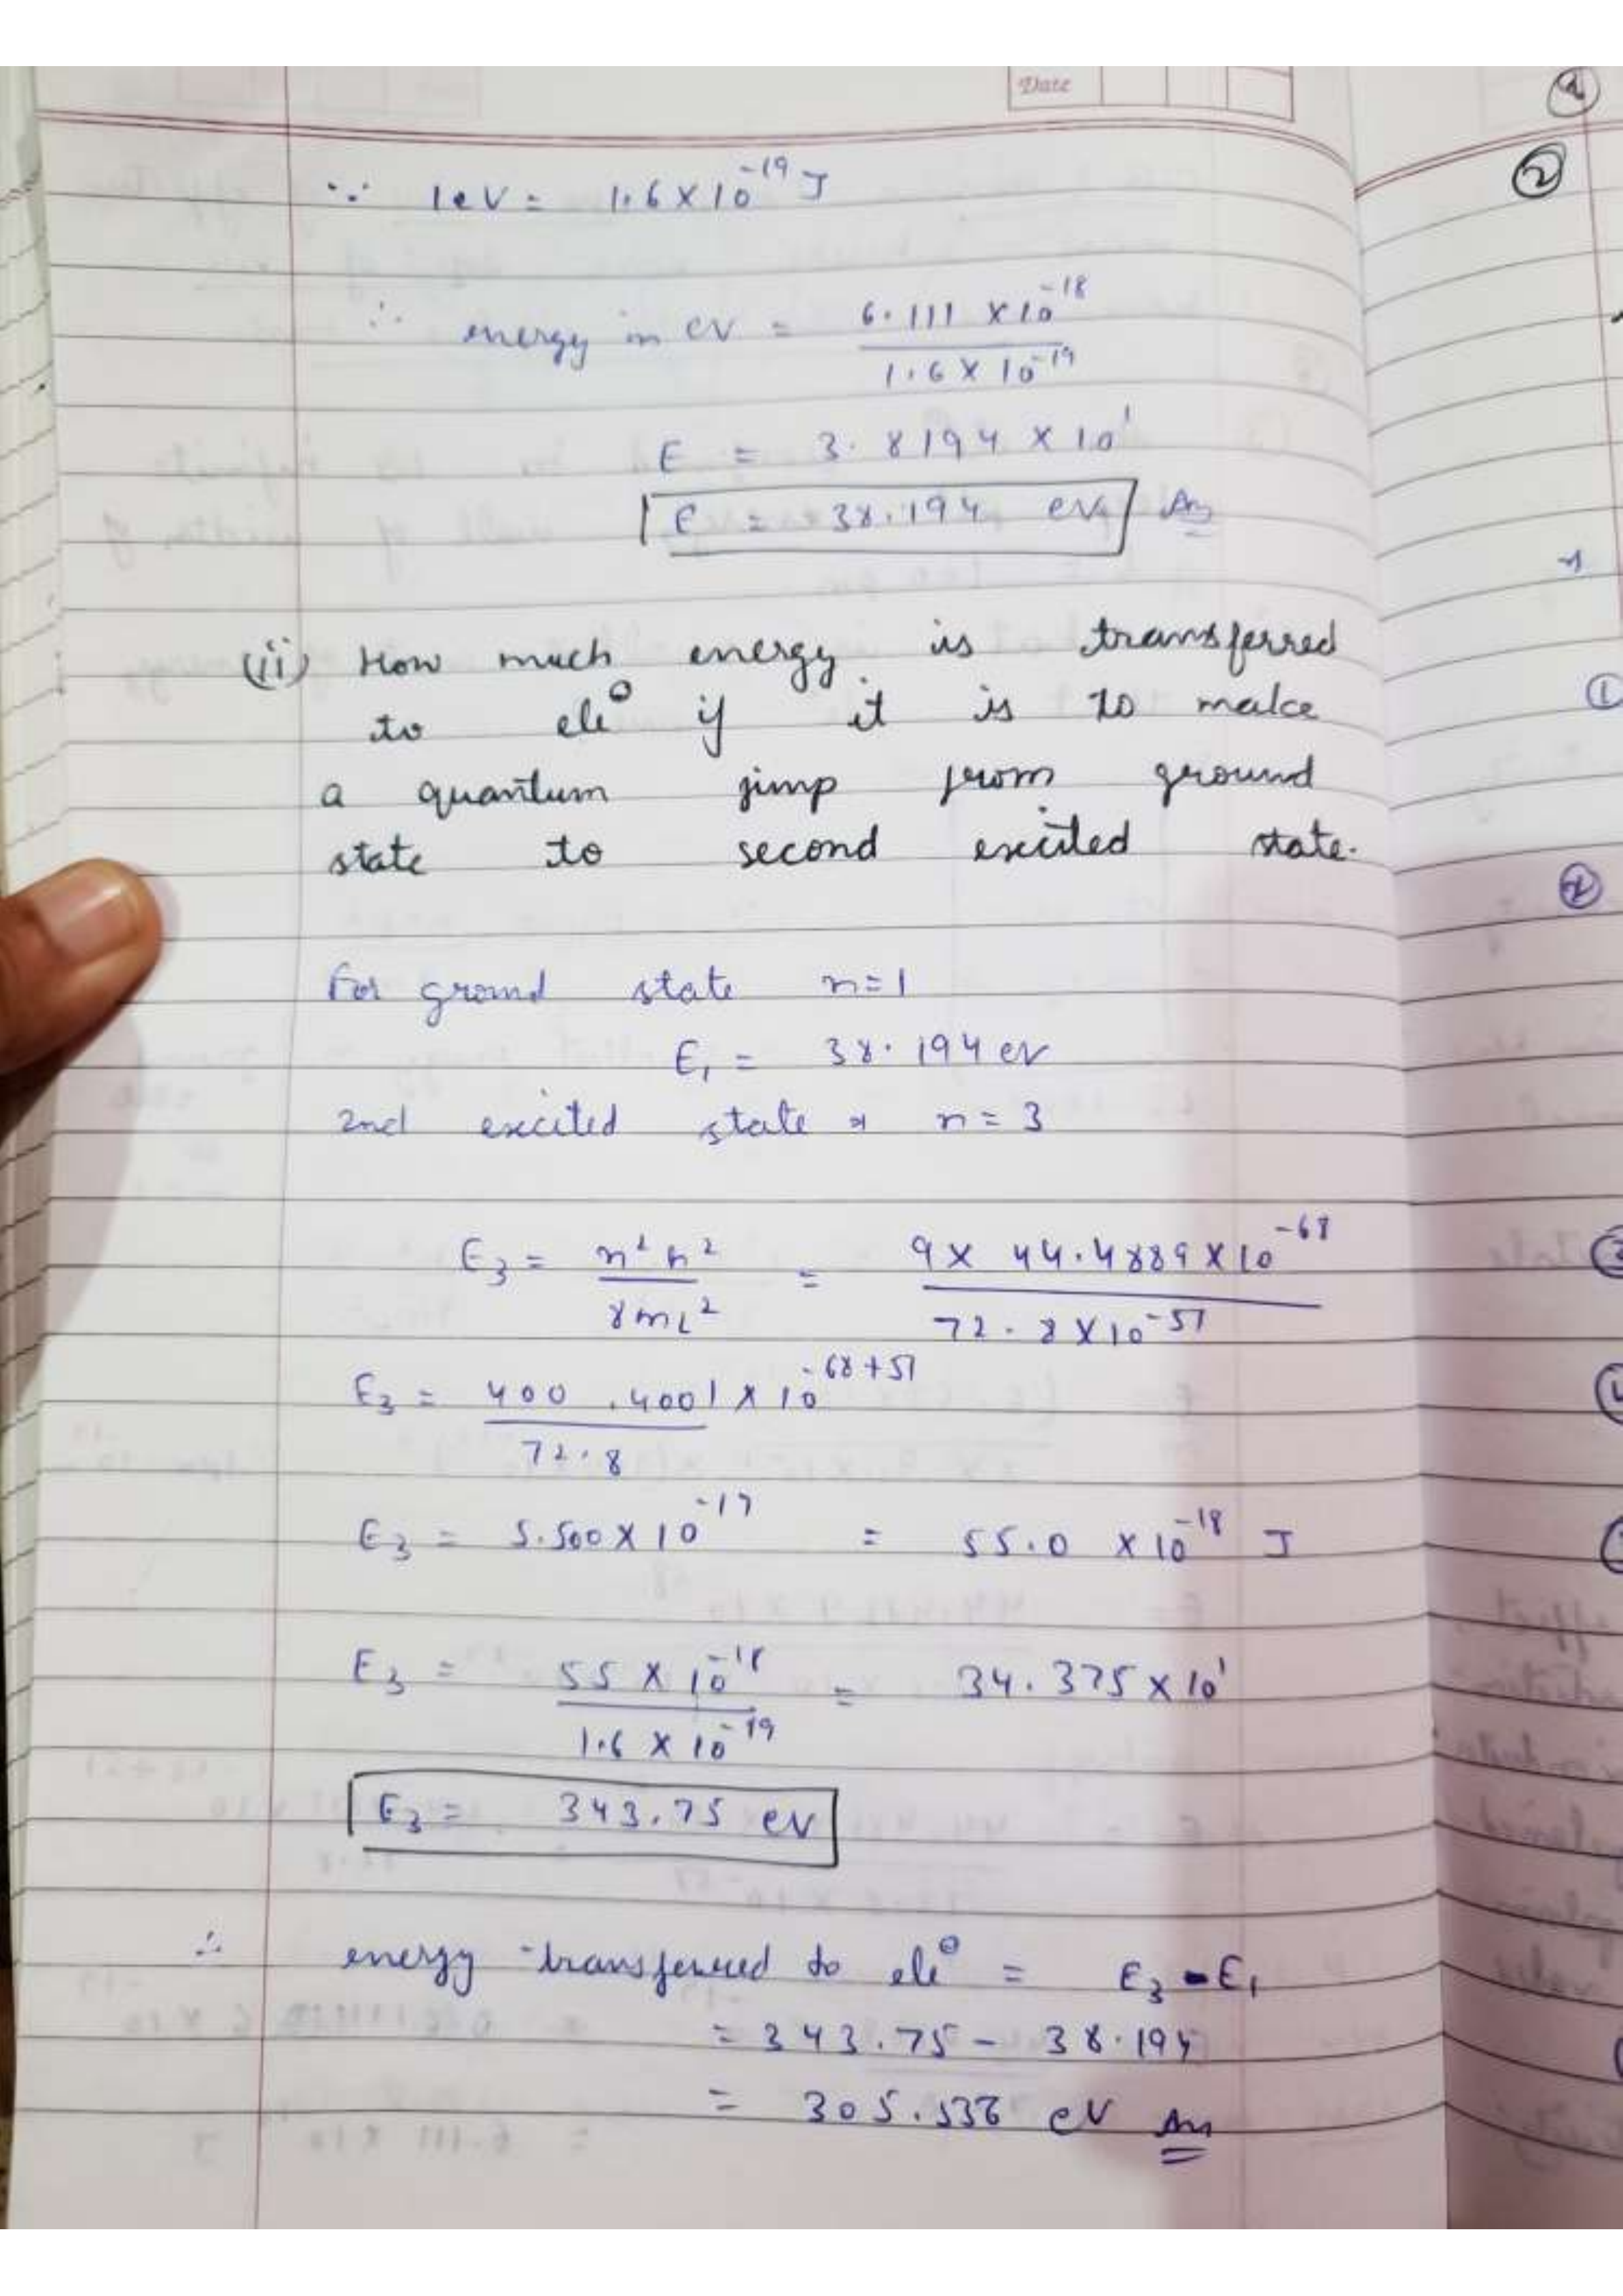 Date
∵ 1eV = 1.6 × 10⁻¹⁹ J
∴ energy in eV = 6.111 × 10⁻¹⁸
1.6 × 10⁻¹⁹
E = 3.8194 × 10¹
E = 38.194 eV Ans
(ii) How much energy is transferred
to ele⊖ if it is to make
a quantum jump from ground
state to second excited state.
For ground state n=1
E₁ = 38.194 eV
2nd excited state → n = 3
E₃ = n² h² / 8mL² = 9 × 44.4889 × 10⁻⁶⁸ / 72.8 × 10⁻⁵¹
E₃ = 400.4001 × 10⁻⁶⁸⁺⁵¹
72.8
E₃ = 5.500 × 10⁻¹⁷ = 55.0 × 10⁻¹⁸ J
E₃ = 55 × 10⁻¹⁸ / 1.6 × 10⁻¹⁹ = 34.375 × 10¹
E₃ = 343.75 eV
∴ energy transferred to ele⊖ = E₃ - E₁
= 343.75 - 38.194
= 305.536 eV Ans
②
①
②